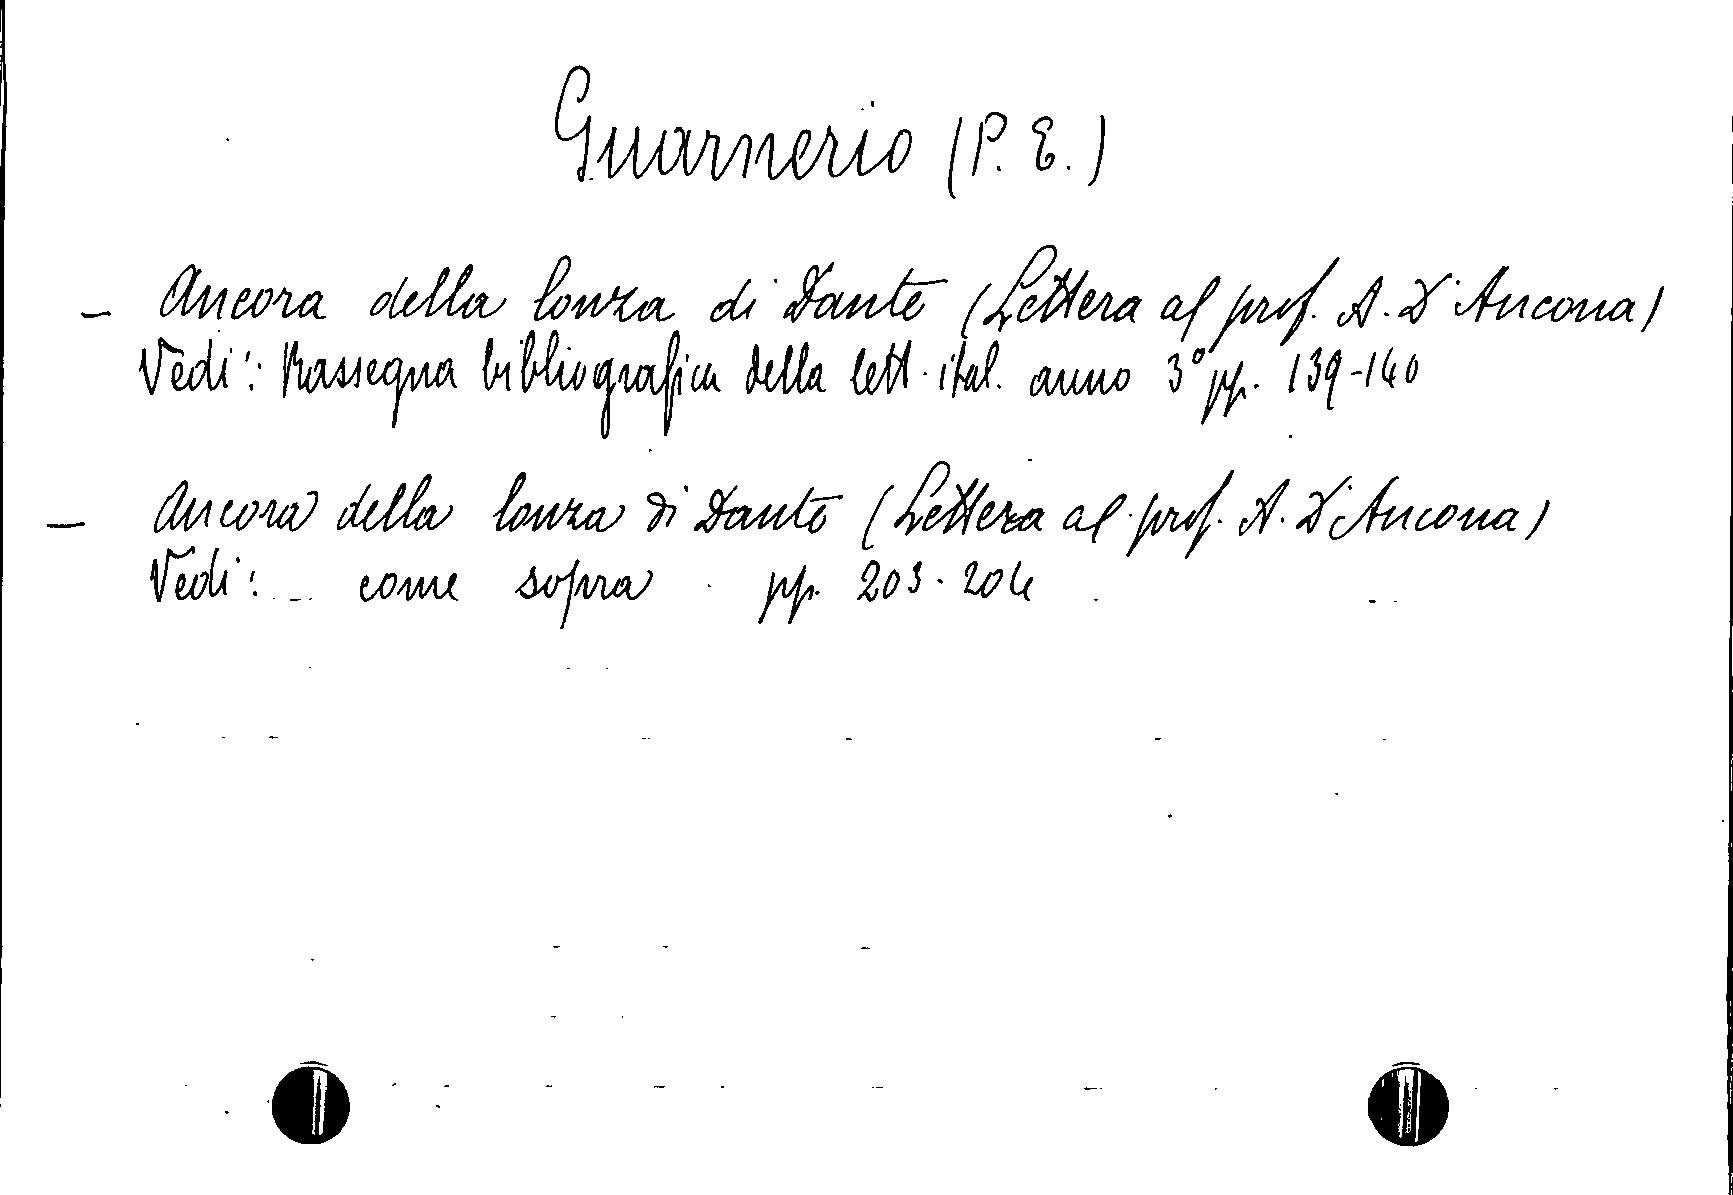 Guarnerio (P. E.)
— Ancora della lonza di Dante (Lettera al prof. A. D'Ancona)
Vedi: Rassegna bibliografica della lett. ital. anno 3° pp. 139-140
— Ancora della lonza di Dante (Lettera al prof. A. D'Ancona)
Vedi: come sopra pp. 203-204